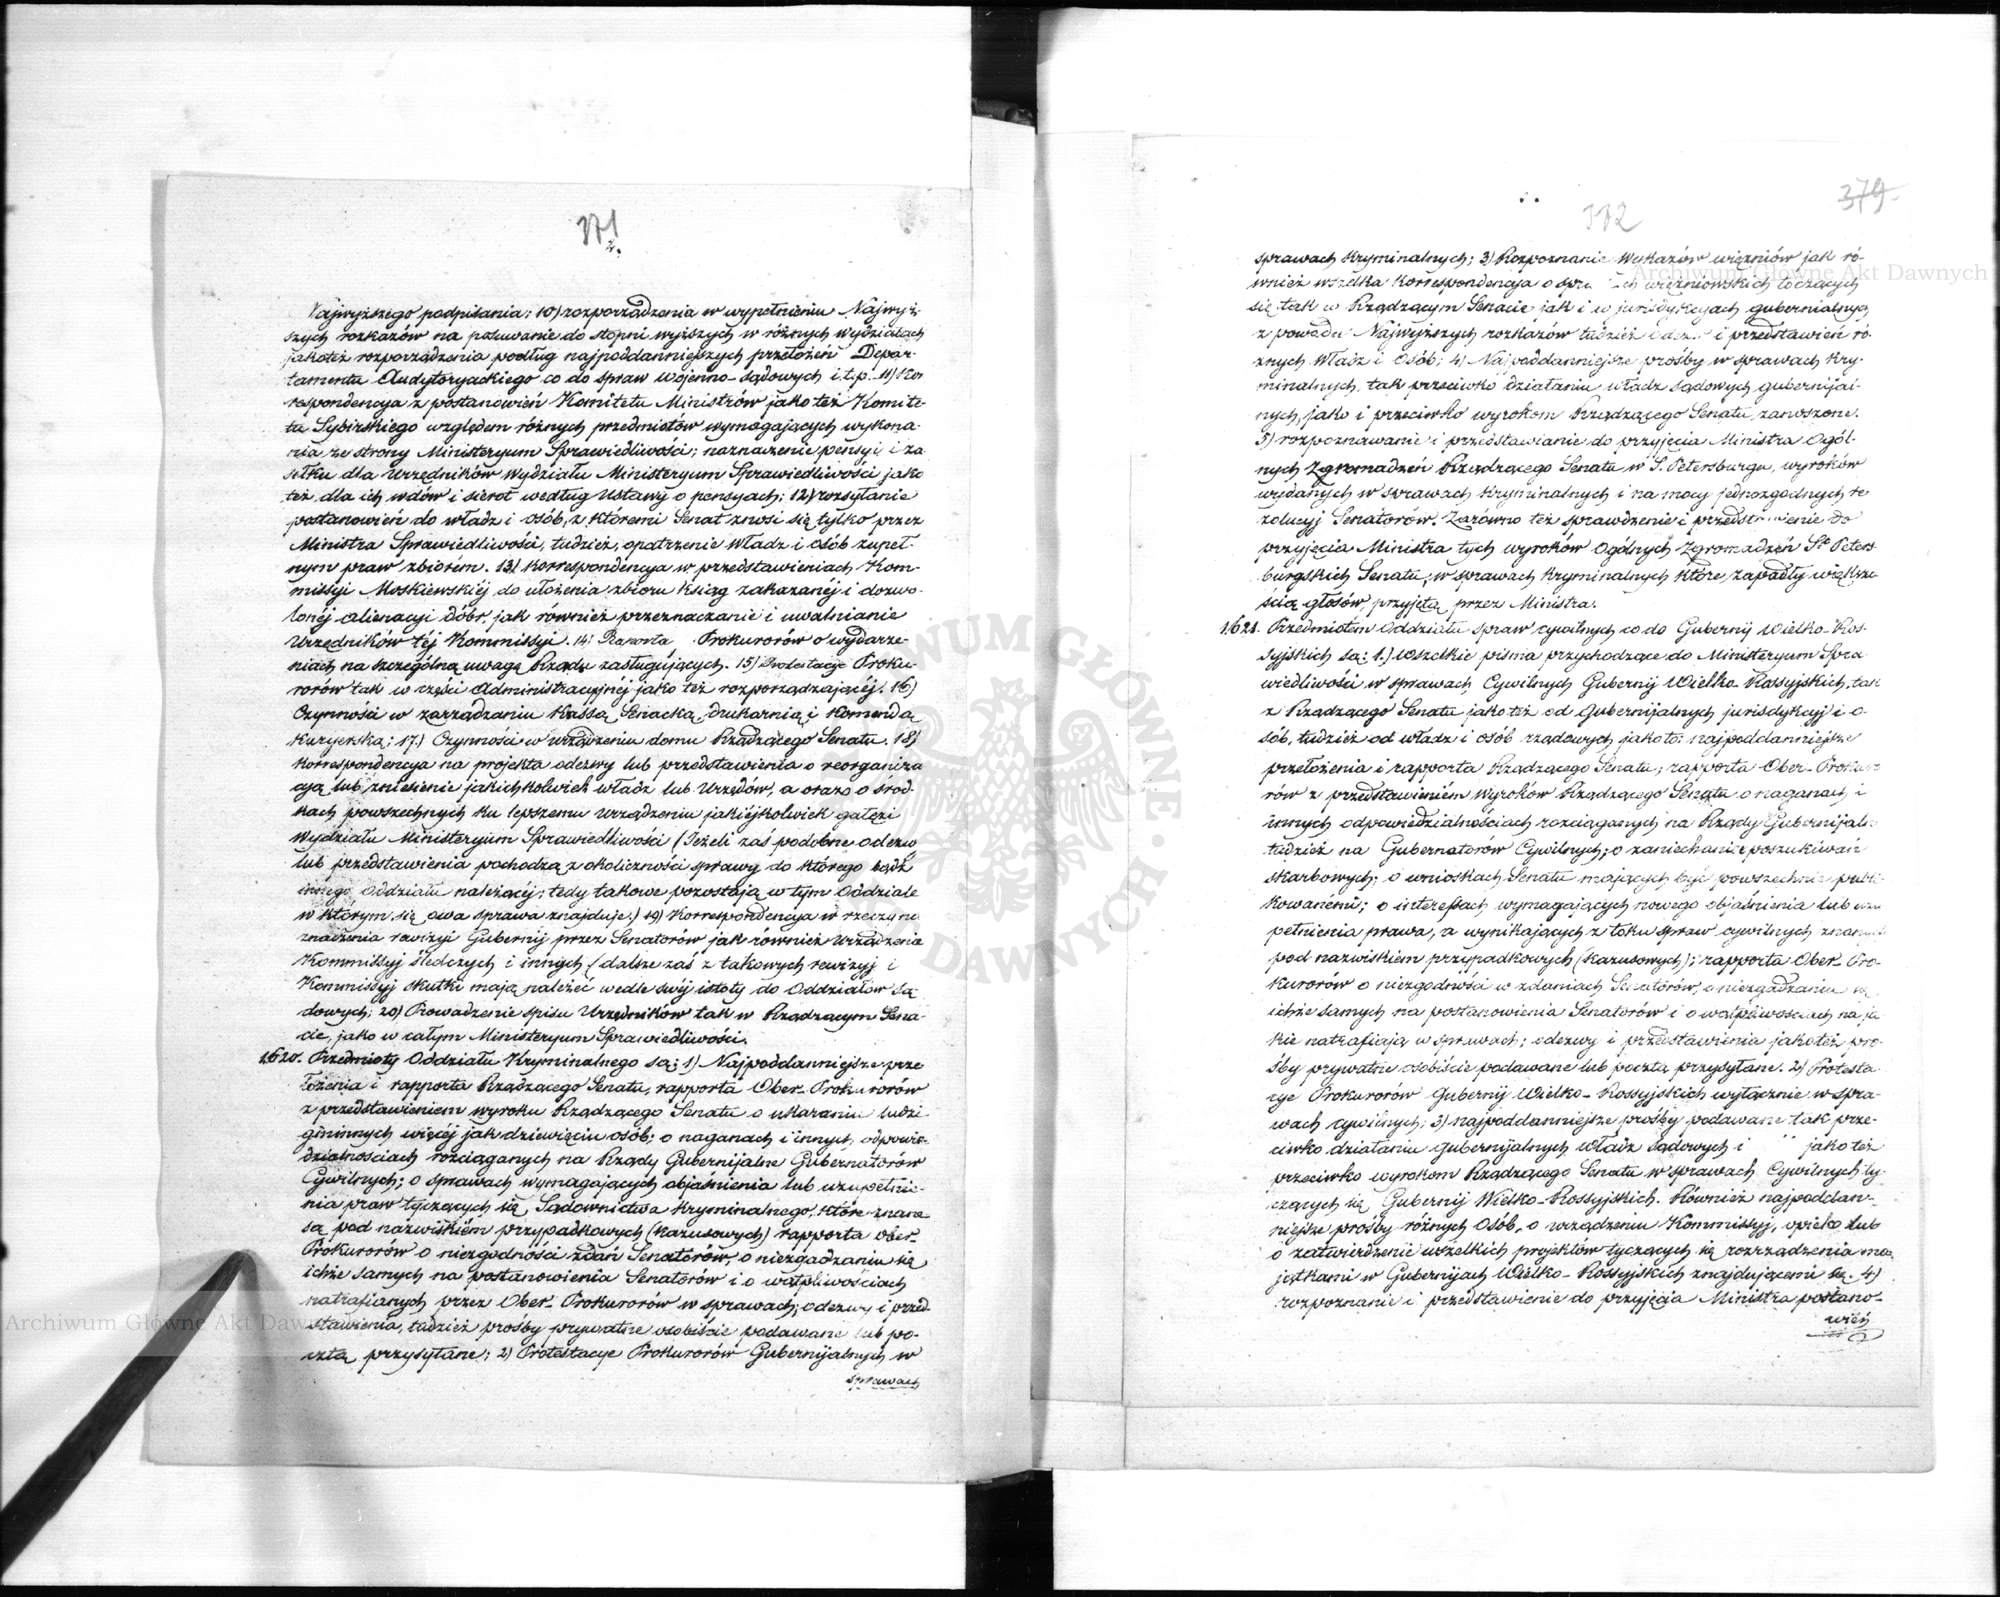 171
Najwyższego podpisania; 10) rozporządzenia w wypełnieniu Najwyż-
szych rozkazów na posuwanie do stopni wyższych w różnych wydziałach
jakoteż rozporządzenia podług najpoddanniejszych przełożeń Depar-
tamentu Audytoryackiego co do spraw wojenno-sądowych i.t.p. 11) Kor
respondencya z postanowień Komitetu Ministrów jako też Komite-
tu Sybirskiego względem różnych przedmiotów wymagających wykona-
nia ze strony Ministeryum Sprawiedliwości; naznaczenie pensyi i za
siłku dla Urzędników Wydziału Ministeryum Sprawiedliwości jako
też dla ich wdów i sierot według Ustawy o pensyach; 12) rozsyłanie
postanowień do władz i osób, z któremi Senat znosi się tylko przez
Ministra Sprawiedliwości, tudzież, opatrzenie Władz i osób zupeł-
nym praw zbiorem. 13) Korrespondencya w przedstawieniach Kom-
missyi Moskiewskiéj do ułożenia zbioru ksiąg zakazanéj i dozwo-
lonéj alienacyi dóbr, jak również przeznaczanie i uwalnianie
Urzędników téj Kommissyi. 14) Raporta Prokurorów o wydarze-
niach na szczególną uwagę Rządu zasługujących. 15) Protestacye Proku-
rorów tak w części Administracyjnéj jako też rozporządzającéj. 16)
Czynności w zarządzaniu Kassą Senacką, drukarnią i Komendą
Kuryerską; 17.) Czynności w urządzeniu domu Rządzącego Senatu. 18)
Korrespondencya na projekta odezwy lub przedstawienia o reorganiza
cyą lub zniesienie jakichkolwiek władz lub Urzędów, a oraz o środ-
kach powszechnych ku lepszemu urządzeniu jakiéjkolwiek gałęzi
Wydziału Ministeryum Sprawiedliwości (Jeżeli zaś podobne odezwy
lub przedstawienia pochodzą z okoliczności sprawy do którego bądź
innego Oddziału należącéj; tedy takowe pozostają w tym Oddziale
w którym się owa sprawa znajduje.) 19) Korrespondencya w rzeczy na
znaczenia rewizyi Gubernij przez Senatorów jak również urządzenia
Kommissyj śledczych i innych (dalsze zaś z takowych rewizyj i
Kommissyj skutki mają należeć wedle swéj istoty do Oddziałów Są-
dowych; 20) Prowadzenie spisu Urzędników tak w Rządzącym Sena-
cie, jako w całym Ministeryum Sprawiedliwości.
1620. Przedmioty Oddziału Kryminalnego są: 1) Najpoddanniejsze prze
łożenia i rapporta Rządzącego Senatu, rapporta Ober-Prokurorów
z przedstawieniem wyroku Rządzącego Senatu o ukaraniu ludzi
gminnych więcéj jak dziewięciu osób; o naganach i innych odpowie-
dzialnościach rozciąganych na Rządy Gubernijalne Gubernatorów
Cywilnych; o sprawach wymagających objaśnienia lub uzupełnie-
nia praw tyczących się Sądownictwa Kryminalnego, które znane
są pod nazwiskiém przypadkowych (Kazusowych) rapporta Ober-
Prokurorów o niezgodności zdań Senatorów, o niezgadzaniu się
ichże samych na postanowienia Senatorów i o wątpliwościach
natrafianych przez Ober-Prokurorów w sprawach; odezwy i przed-
stawienia, tudzież prośby prywatne osobiście podawane lub po-
cztą przysyłane; 2) Protestacye Prokurorów Gubernijalnych w
sprawach
112
379
sprawach Kryminalnych; 3) Rozpoznanie Wykazów więźniów jak ró-
wnież wszelka Korrespondencya o więźniowskich toczących
się tak w Rządzącym Senacie jak i w jurisdykcyach gubernialnych
z powodu Najwyższych rozkazów tudzież i przedstawień ró-
żnych Władz i Osób; 4) Najpoddanniejsze prośby w sprawach Kry-
minalnych, tak przeciwko działaniu władz sądowych gubernijal-
nych, jako i przeciwko wyrokom Rządzącego Senatu, zanoszone.
5) rozpoznawanie i przedstawianie do przyjęcia Ministra Ogól-
nych Zgromadzeń Rządzącego Senatu w S. Petersburgu, wyroków
wydanych w sprawach Kryminalnych i na mocy jednozgodnych re
zolucyj Senatorów. Zarówno też sprawdzenie i przedstawienie do
przyjęcia Ministra tych wyroków Ogólnych Zgromadzeń St Peters-
burgskich Senatu, w sprawach Kryminalnych które zapadły większo
ścią głosów, przyjętą przez Ministra.
1621. Przedmiotem Oddziału spraw cywilnych co do Gubernij Wielko-Ros-
syjskich są: 1.) Wszelkie pisma przychodzące do Ministeryum Spra-
wiedliwości w sprawach Cywilnych Gubernij Wielko-Rossyjskich, tak
z Rządzącego Senatu jakoteż od Gubernijalnych jurisdykcyj i o-
sób, tudzież od władz i osób rządowych jakoto: najpoddanniejsze
przełożenia i rapporta Rządzącego Senatu; rapporta Ober-Prokuro
rów z przedstawieniem wyroków Rządzącego Senatu o naganach i
innych odpowiedzialnościach rozciąganych na Rządy Gubernijalne
tudzież na Gubernatorów Cywilnych; o zaniechanie poszukiwań
skarbowych; o wnioskach Senatu mających być powszechnie publi-
kowanemi; o interessach wymagających nowego objaśnienia lub uzu
pełnienia prawa, a wynikających z toku spraw cywilnych znanych
pod nazwiskiem przypadkowych (Kazusowych); rapporta Ober-Pro-
kurorów o niezgodności w zdaniach Senatorów, o niezgadzaniu się
ichże samych na postanowienia Senatorów i o wątpliwościach na ja
kie natrafiają w sprawach; odezwy i przedstawienia jakoteż pro-
śby prywatne osobiście podawane lub pocztą przysyłane. 2) Protesta
cye Prokurorów Gubernij Wielko-Rossyjskich wyłącznie w spra-
wach cywilnych; 3) najpoddanniejsze prośby podawane tak prze-
ciwko działaniu gubernijalnych władz sądowych i jako też
przeciwko wyrokom Rządzącego Senatu w sprawach Cywilnych ty-
czących się Gubernij Wielko-Rossyjskich. Również najpoddan-
niejsze prośby różnych Osób, o urządzeniu Kommissyj, opieko lub
o zatwierdzenie wszelkich projektów tyczących się rozrządzenia ma-
jątkami w Gubernijach Wielko-Rossyjskich znajdującemi się. 4)
rozpoznanie i przedstawienie do przyjęcia Ministra postano-
wień
Archiwum Główne Akt Dawnych
Archiwum Główne Akt Dawnych
ARCHIWUM GŁÓWNE AKT DAWNYCH